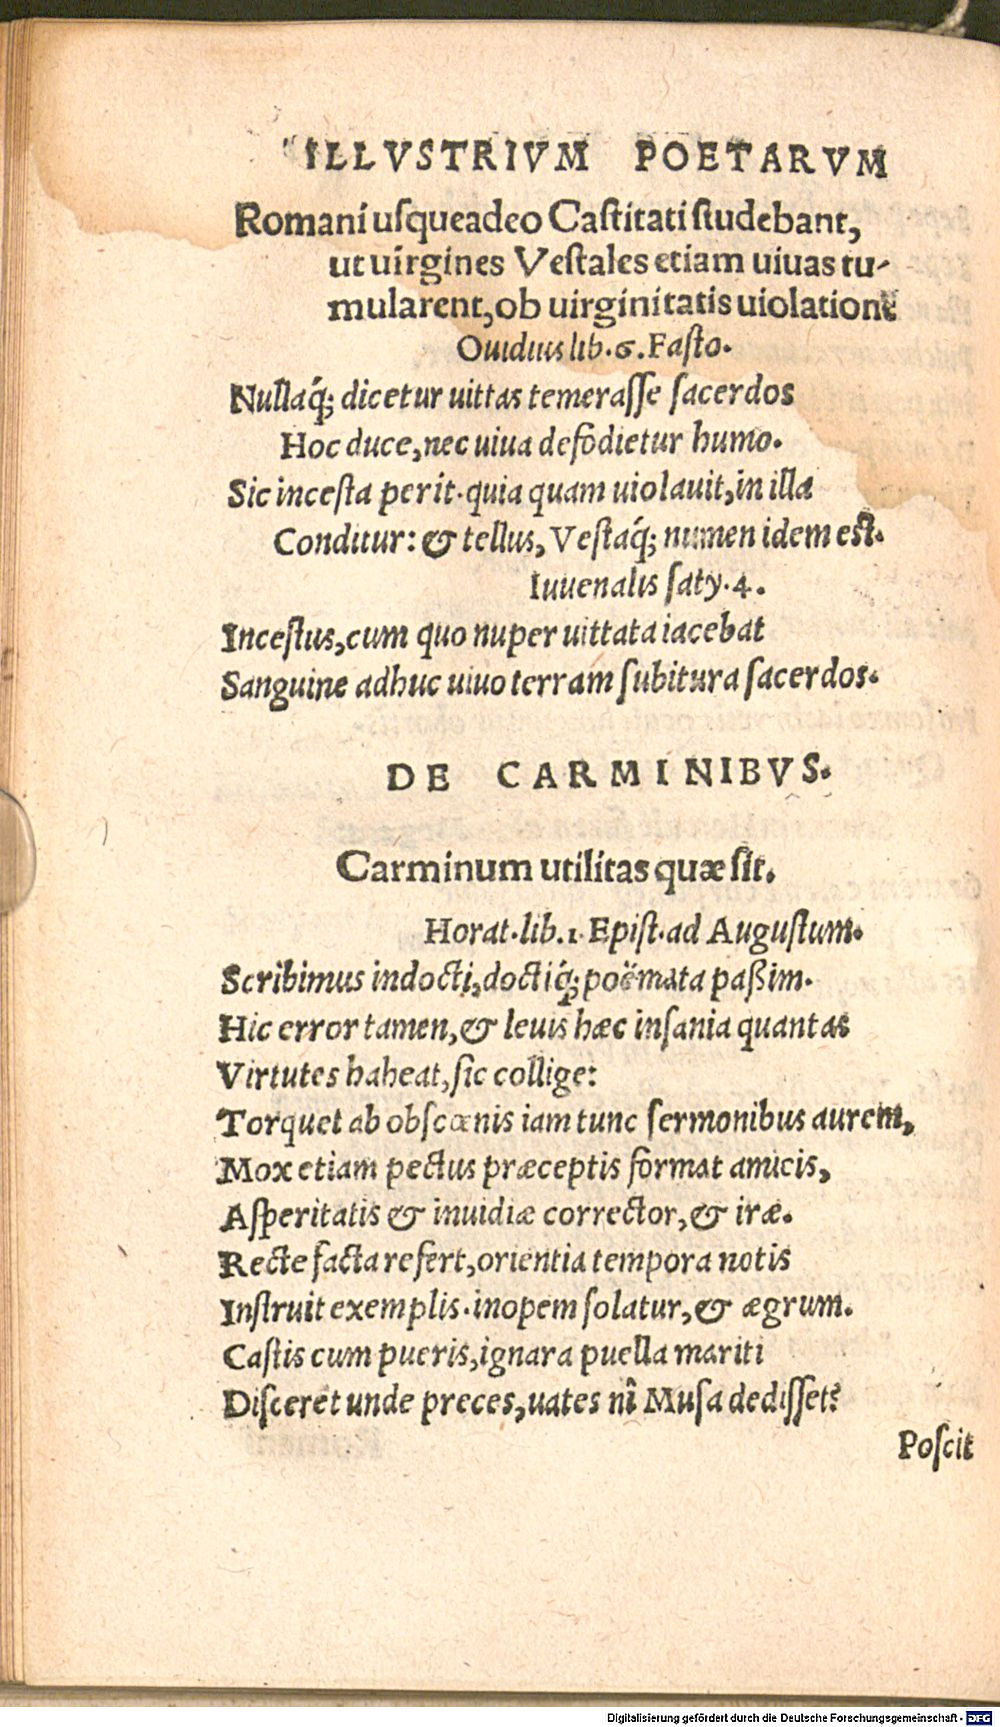 ILLVSTRIVM POETARVM
Romani usqueadeo Castitati studebant,
ut uirgines Vestales etiam uiuas tu-
mularent, ob uirginitatis uiolationẽ
Ouidius lib. 6. Fasto.
Nullaq́; dicetur uittas temerasse sacerdos
Hoc duce, nec uiua defodietur humo.
Sic incesta perit. quia quam uiolauit, in illa
Conditur: & tellus, Vestaq́; numen idem est.
Iuuenalis saty. 4.
Incestus, cum quo nuper uittata iacebat
Sanguine adhuc uiuo terram subitura sacerdos.
DE CARMINIBVS.
Carminum utilitas quæ sit.
Horat. lib. 1. Epist. ad Augustum.
Scribimus indocti, doctiq́; poëmata paßim.
Hic error tamen, & leuis hæc insania quantas
Virtutes habeat, sic collige:
Torquet ab obscœnis iam tunc sermonibus aurem,
Mox etiam pectus præceptis format amicis,
Asperitatis & inuidiæ corrector, & iræ.
Recte facta refert, orientia tempora notis
Instruit exemplis. inopem solatur, & ægrum.
Castis cum pueris, ignara puella mariti
Disceret unde preces, uates nî Musa dedisset?
Poscit
Digitalisierung gefördert durch die Deutsche Forschungsgemeinschaft - DFG